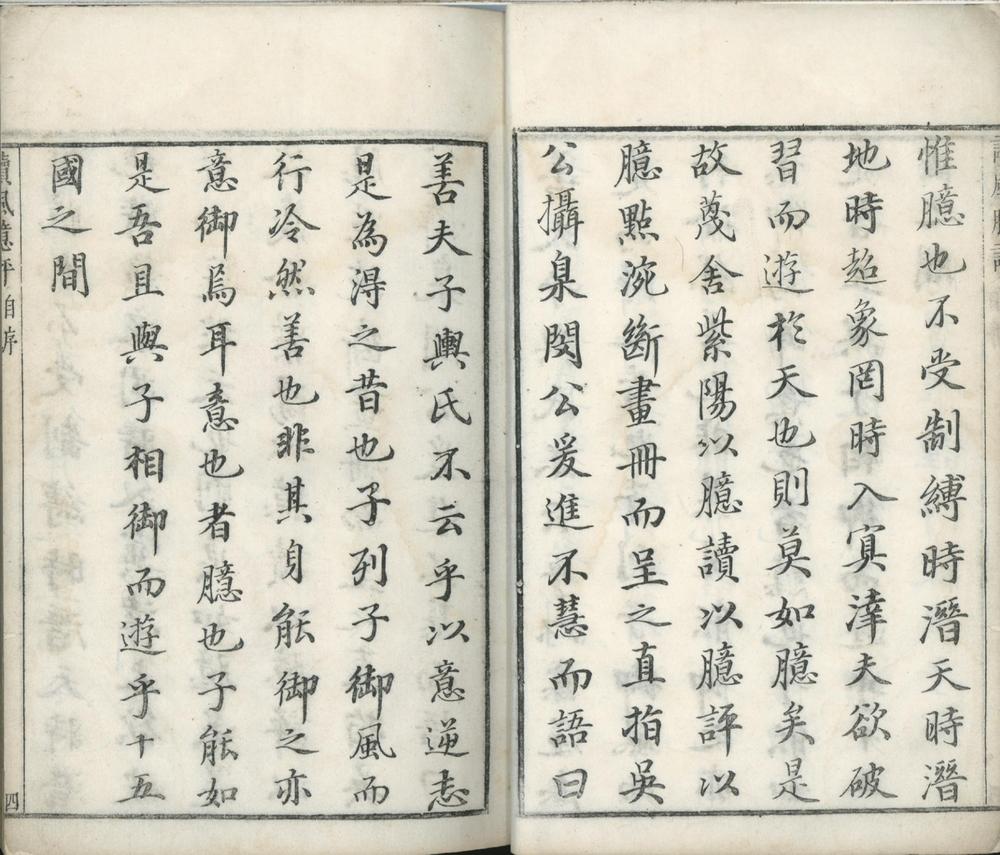 惟臆也不受制縛時潛天時潛
地時超象罔時入冥涬夫欲破
習而遊於天也則莫如臆矣是
故蔑舍紫陽以臆讀以臆評以
臆點涴斷畫冊而呈之直指吳
公攝臬閔公爰進不慧而語曰
善夫子輿氏不云乎以意逆志
是為淂之昔也子列子御風而
行冷然善也非其身能御之亦
意御焉耳意也者臆也子能如
是吾且與子相御而遊乎十五
國之間
讀風臆評自序
四